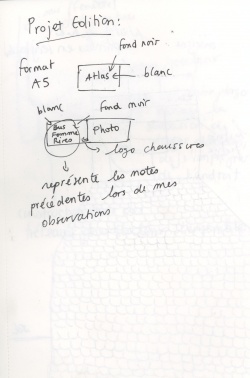 Projet Edition :
fond noir
format
A5
Atlas
blanc
blanc
fond noir
Bus
Femme
Rires
Photo
logo chaussures
représente les notes
précédentes lors de mes
observations